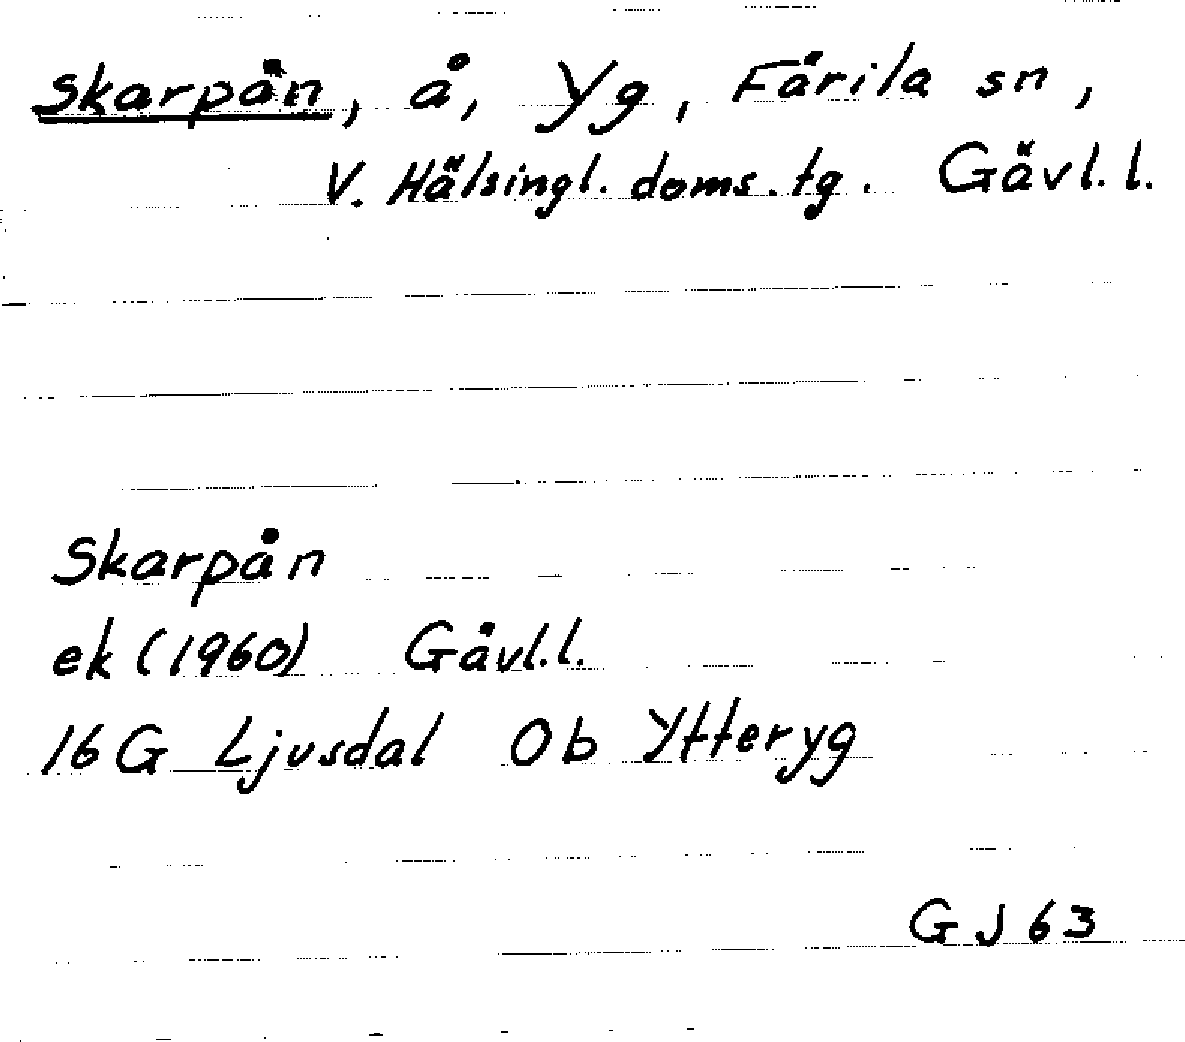 Skarpån, å, Yg, Färila sn,
V. Hälsingl. doms. tg. Gävl. l.
Skarpån
ek (1960) Gävl. l.
16 G Ljusdal 0b Ytteryg
GJ 63